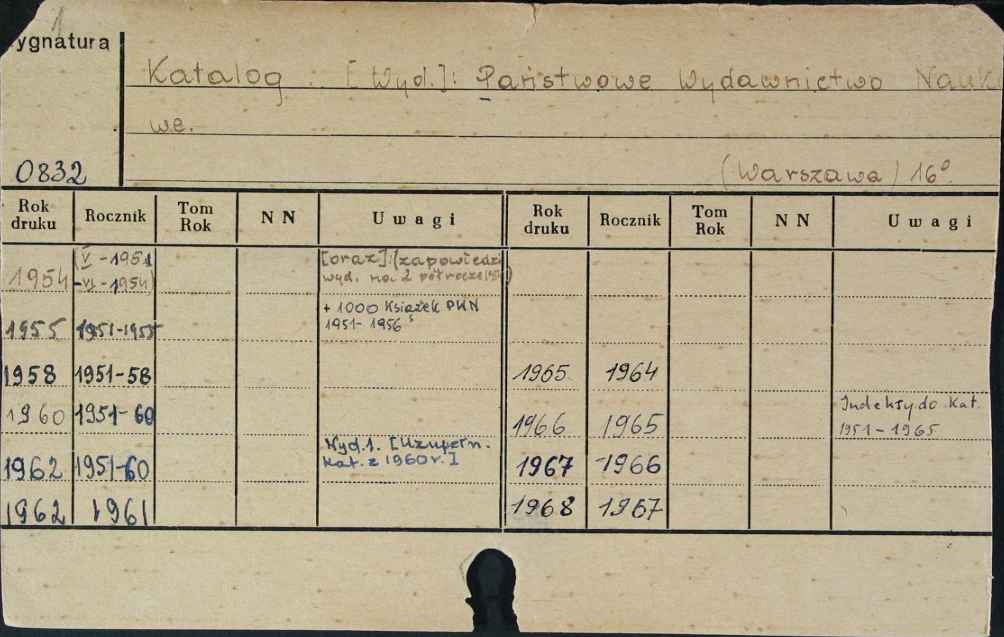 1
ygnatura
Katalog .. [Wyd.]: Państwowe Wydawnictwo Nauk
we.
0832
(Warszawa) 16°
Rok druku Rocznik Tom Rok NN Uwagi Rok druku Rocznik Tom Rok NN Uwagi
1954 (V-1951-VI-1954) [oraz]: (zapowiedzi wyd. na 2 półrocze 1954)
1955 1951-1955 + 1000 Książek PWN 1951-1956
1958 1951-58 1965 1964
1960 1951-60 1966 1965 Indeksy do Kat. 1951-1965
1962 1951-60 Wyd.1. [Uzupełn. Kat. z 1960 r.] 1967 1966
1962 1961 1968 1967